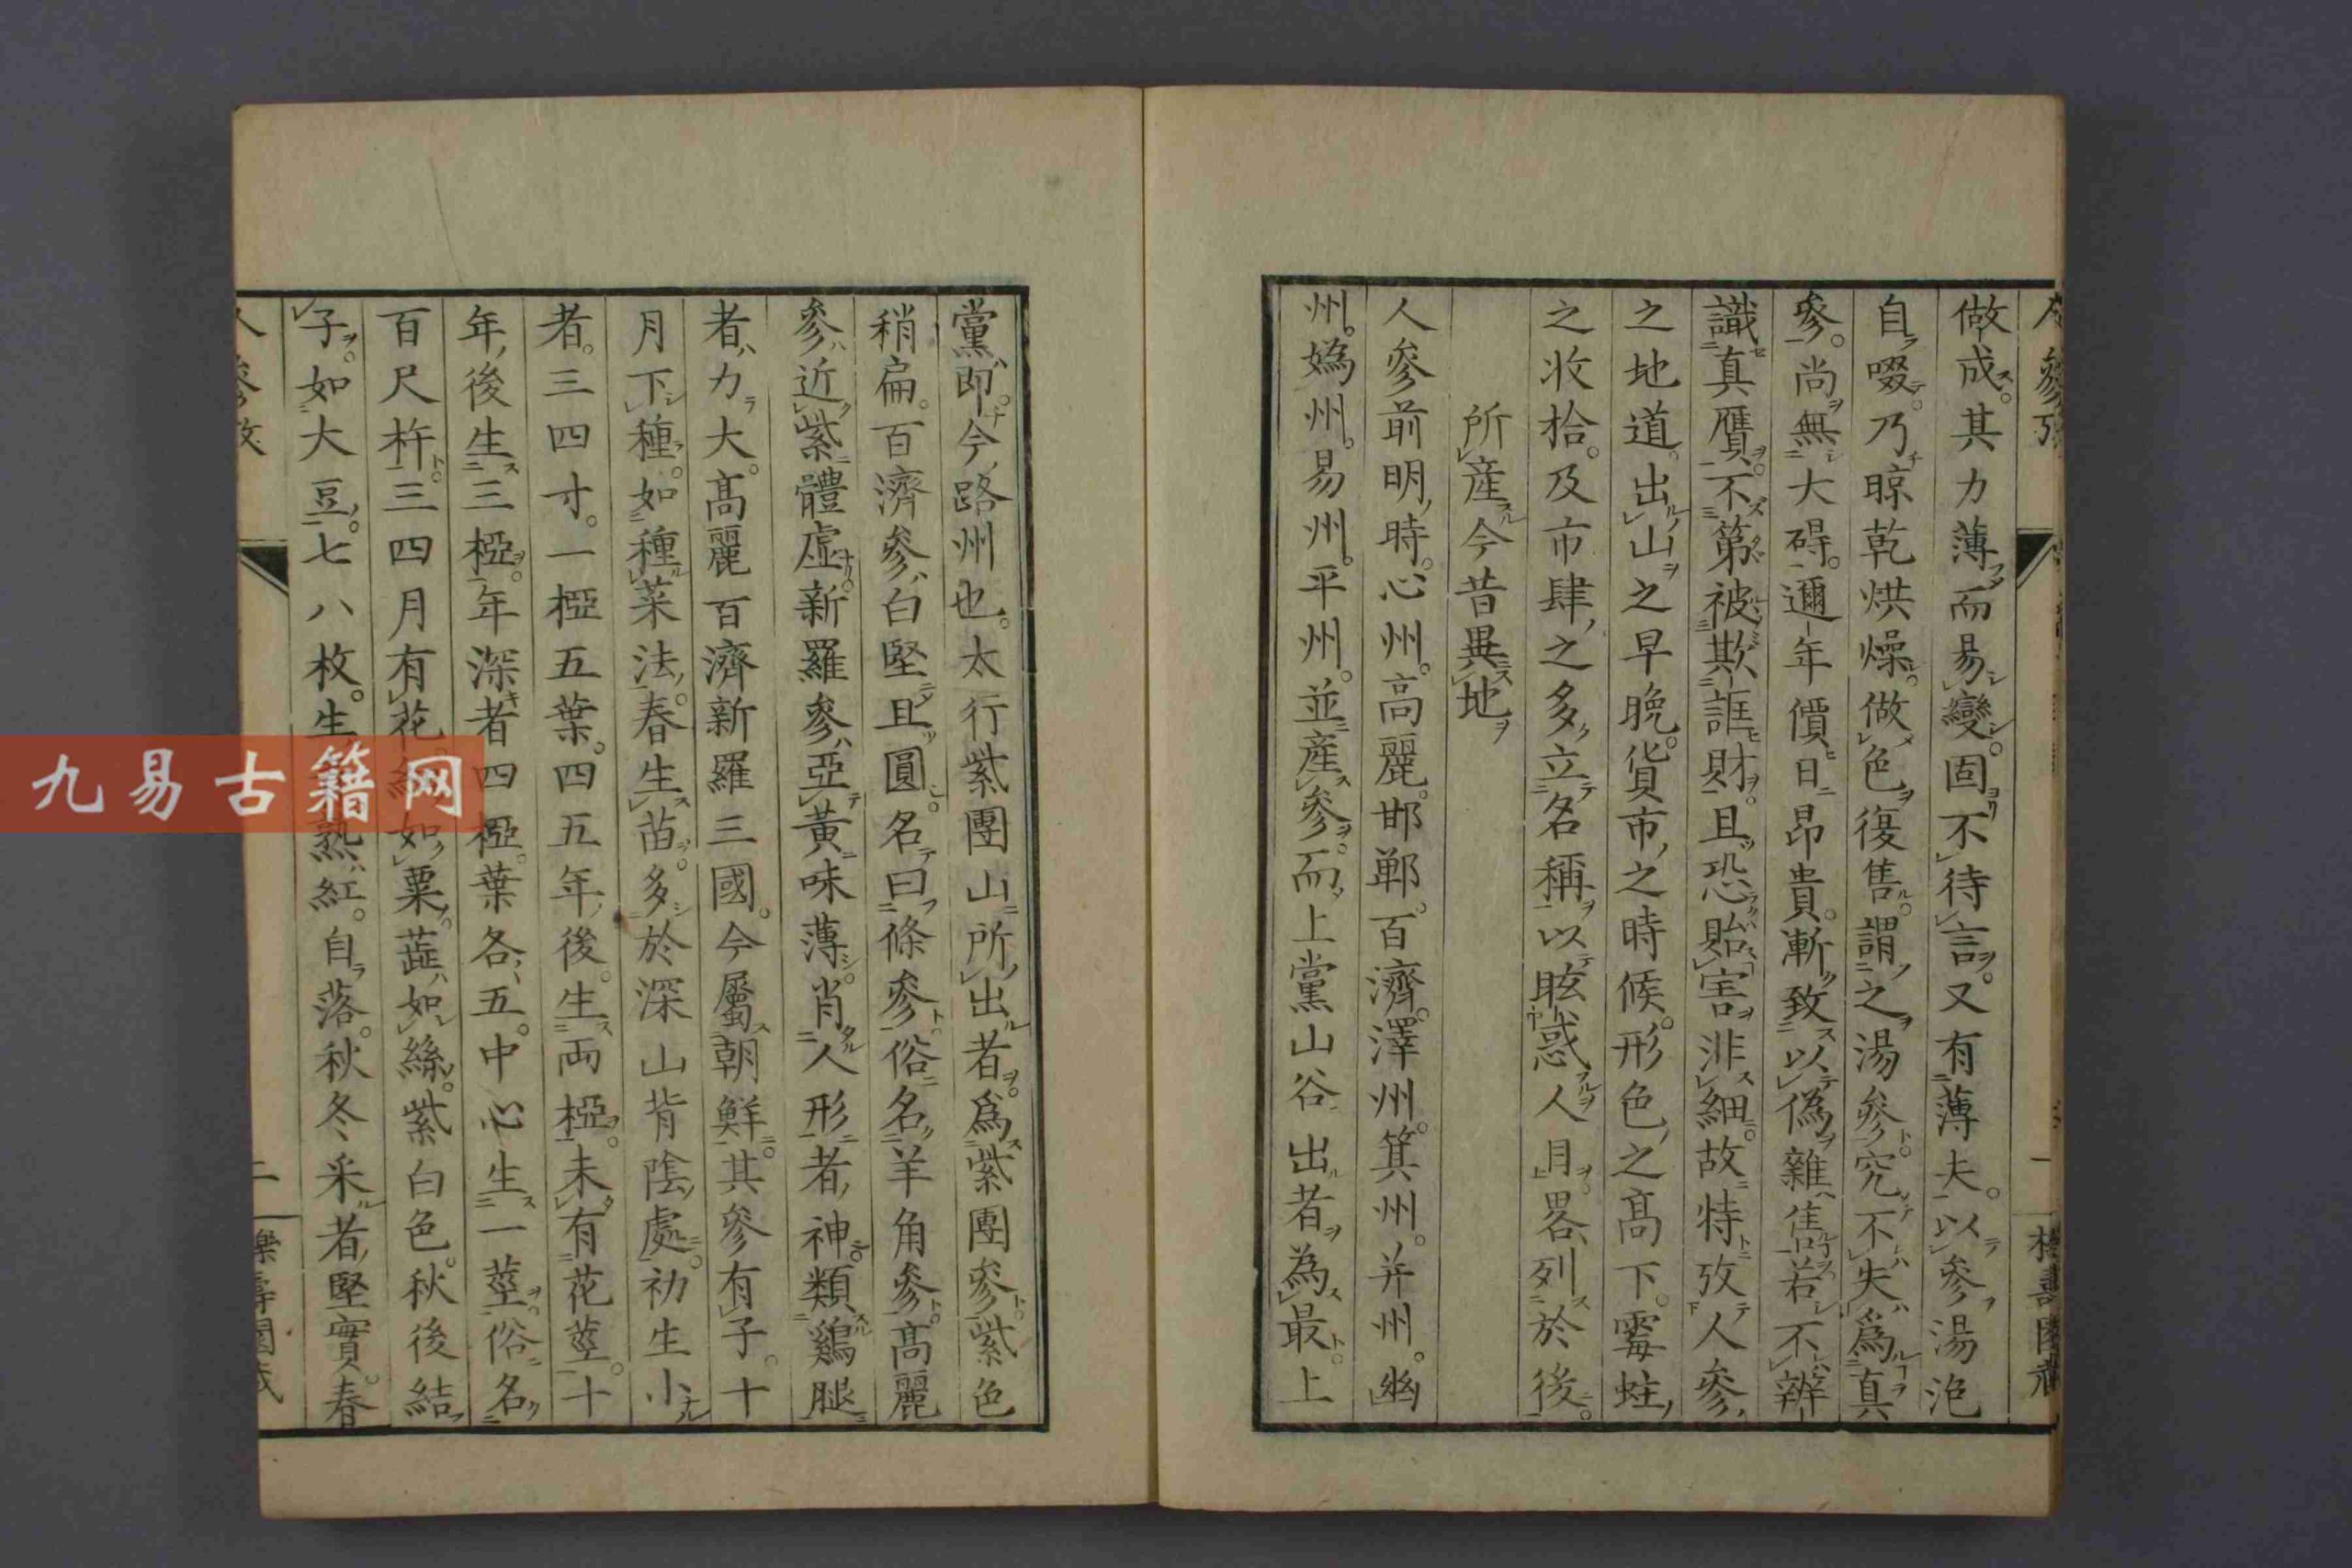 做成。其力薄而易變。固不待言。又有薄夫。以參湯浥
自啜。乃晾乾烘燥。做色復售。謂之湯參。究不失爲真
參。尚無大碍。邇年價日昂貴。漸致以偽雜售。若不辨
識真贋。不第被欺誆財。且恐貽害非細。故特攷人參
之地道。出山之早晚。貨市之時候。形色之高下。霉蛀
之收拾。及市肆之多立名稱。以眩惑人目。畧列於後。
所產今昔異地
人參前明時。心州。高麗。邯鄲。百濟。澤州。箕州。并州。幽
州。媯州。易州。平州。並產參。而上黨山谷出者為最。上
黨。即今路州也。太行紫團山所出者。爲紫團參。紫色
稍扁。百濟參白堅且圓。名曰條參。俗名羊角參。高麗
參近紫體虛。新羅參亞黃味薄。肖人形者神。類鷄腿
者力大。高麗百濟新羅三國。今屬朝鮮。其參有子。十
月下種。如種菜法。春生苗。多於深山背陰處。初生小
者。三四寸。一椏五葉。四五年後。生兩椏。未有花莖。十
年後生三椏。年深者四椏。葉各五。中心生一莖。俗名
百尺杵。三四月有花。如粟。蕋如絲。紫白色。秋後結
子。如大豆。七八枚。生熟紅。自落。秋冬采者堅實。春
人參攷
二
九易古籍网